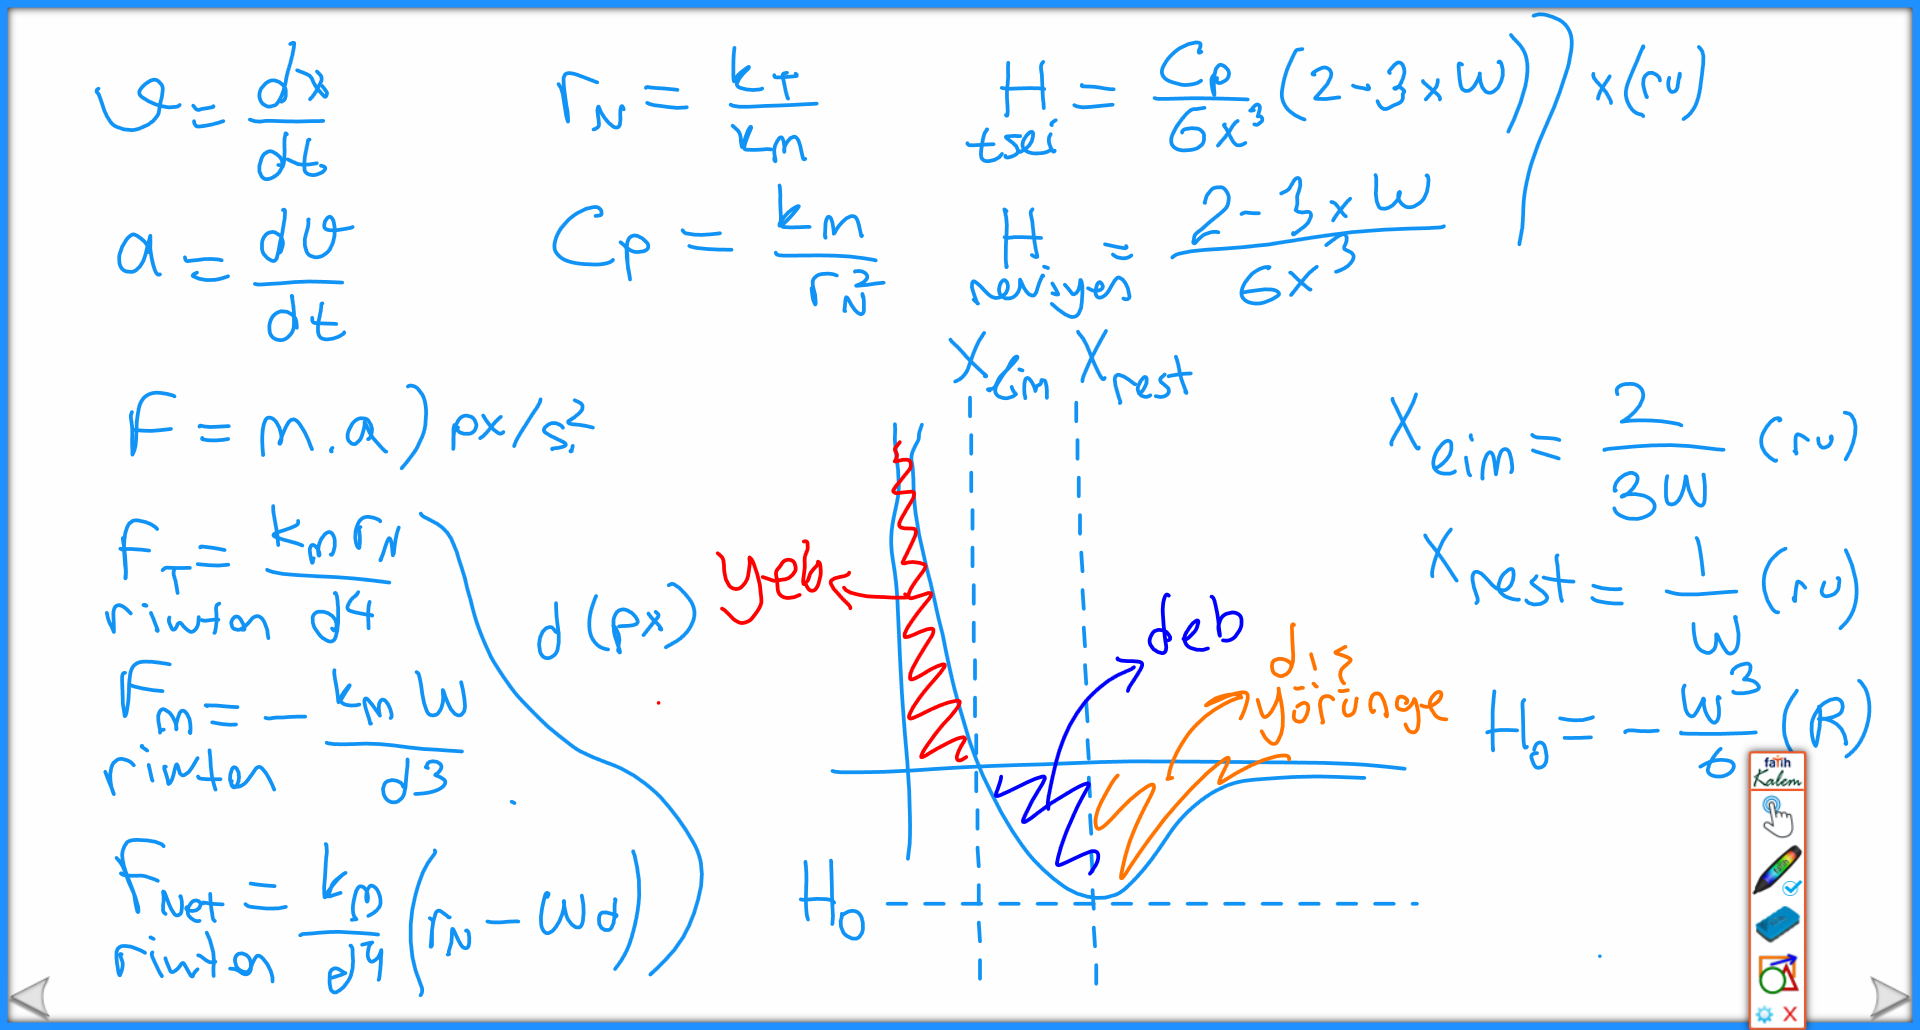 ϑ = dx/dt
a = dϑ/dt
F = m.a) px/s²
F_T = k_m r_N / d4
rinton
F_m = - k_m W / d3
rinton
F_Net = k_m / d4 (r_N - Wd)
rinton
r_N = k_T / k_m
C_p = k_m / r_N²
H = C_p / 6x³ (2-3xW)
tsei
H = 2-3xW / 6x³
x(ru)
d (px)
X_lim
X_rest
yeb
deb
dış
yörünge
H_0
X_lim = 2 / 3W (ru)
X_rest = 1 / W (ru)
H_0 = - W³ / 6 (R)
fatih
Kalem